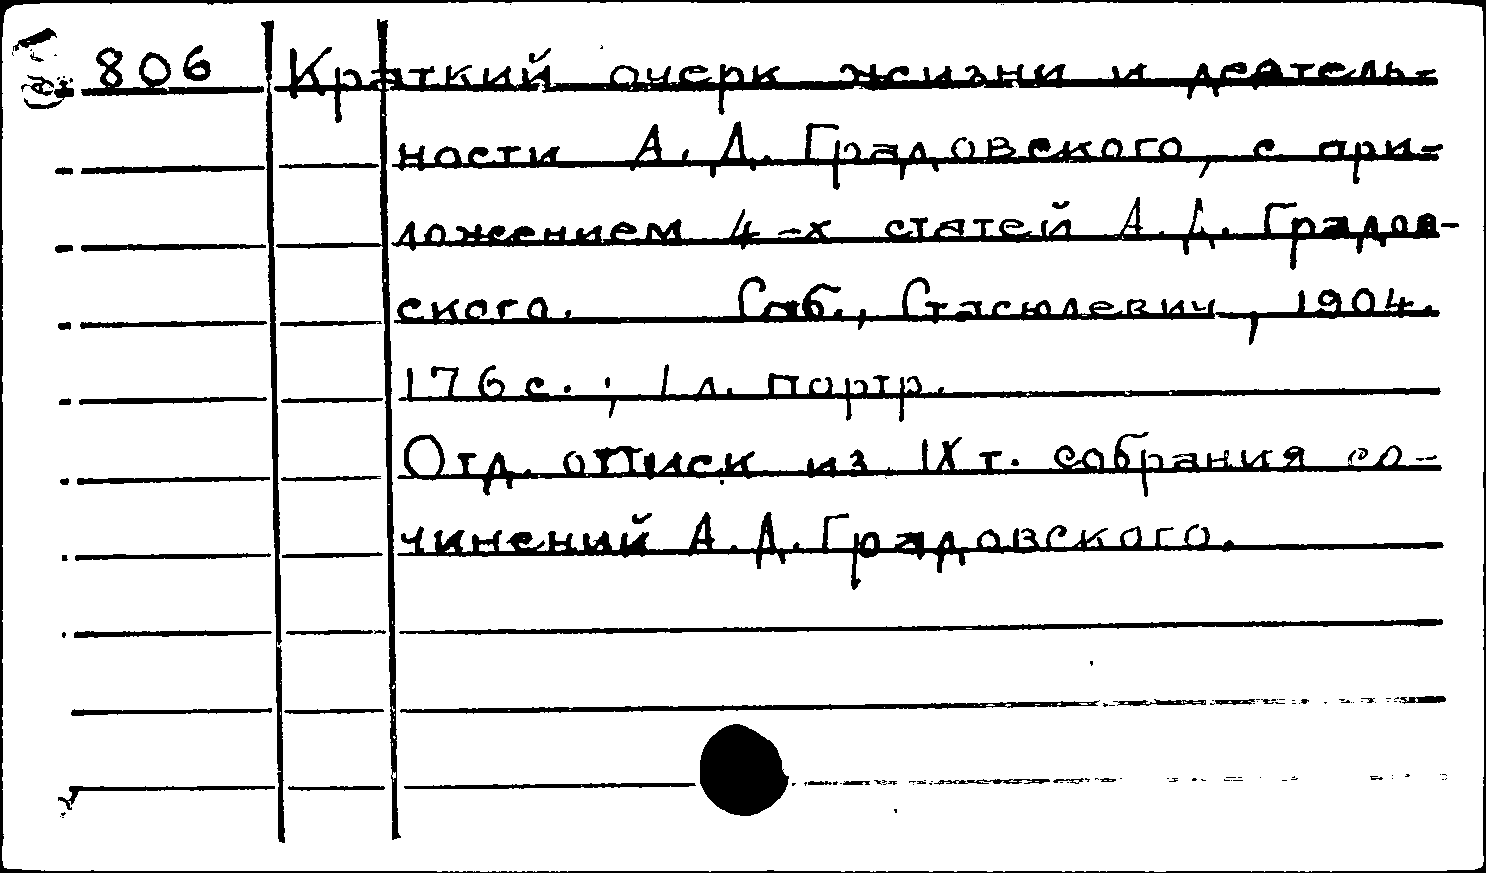 806 Краткий очерк жизни и деятель-
ности А. Д. Градовского, с при-
ложением 4-х статей А. Д. Градов-
ского. Спб., Стасюлевич, 1904.
176 с. ; 1 л. портр.
Отд. оттиск из IX т. собрания со-
чинений А. Д. Градовского.